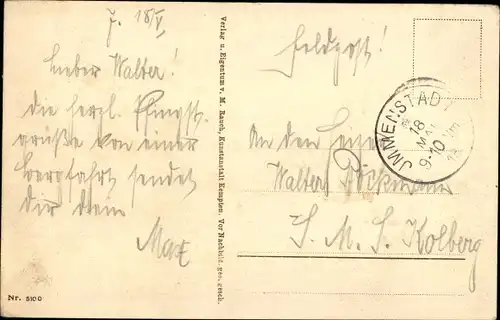 J. 18/V.
Lieber Walter!
die herzl. Pfingst-
grüße von einer
Bergfahrt sendet
dir dein
Max
Nr. 5100
Verlag u. Eigentum v. M. Rauch, Kunstanstalt Kempten. Vor Nachbild. ges. gesch.
Feldpost!
IMMENSTADT
18
MAI
9-10 Vm
An den Heizer
Walter Böckmann
S. M. S. Kolberg